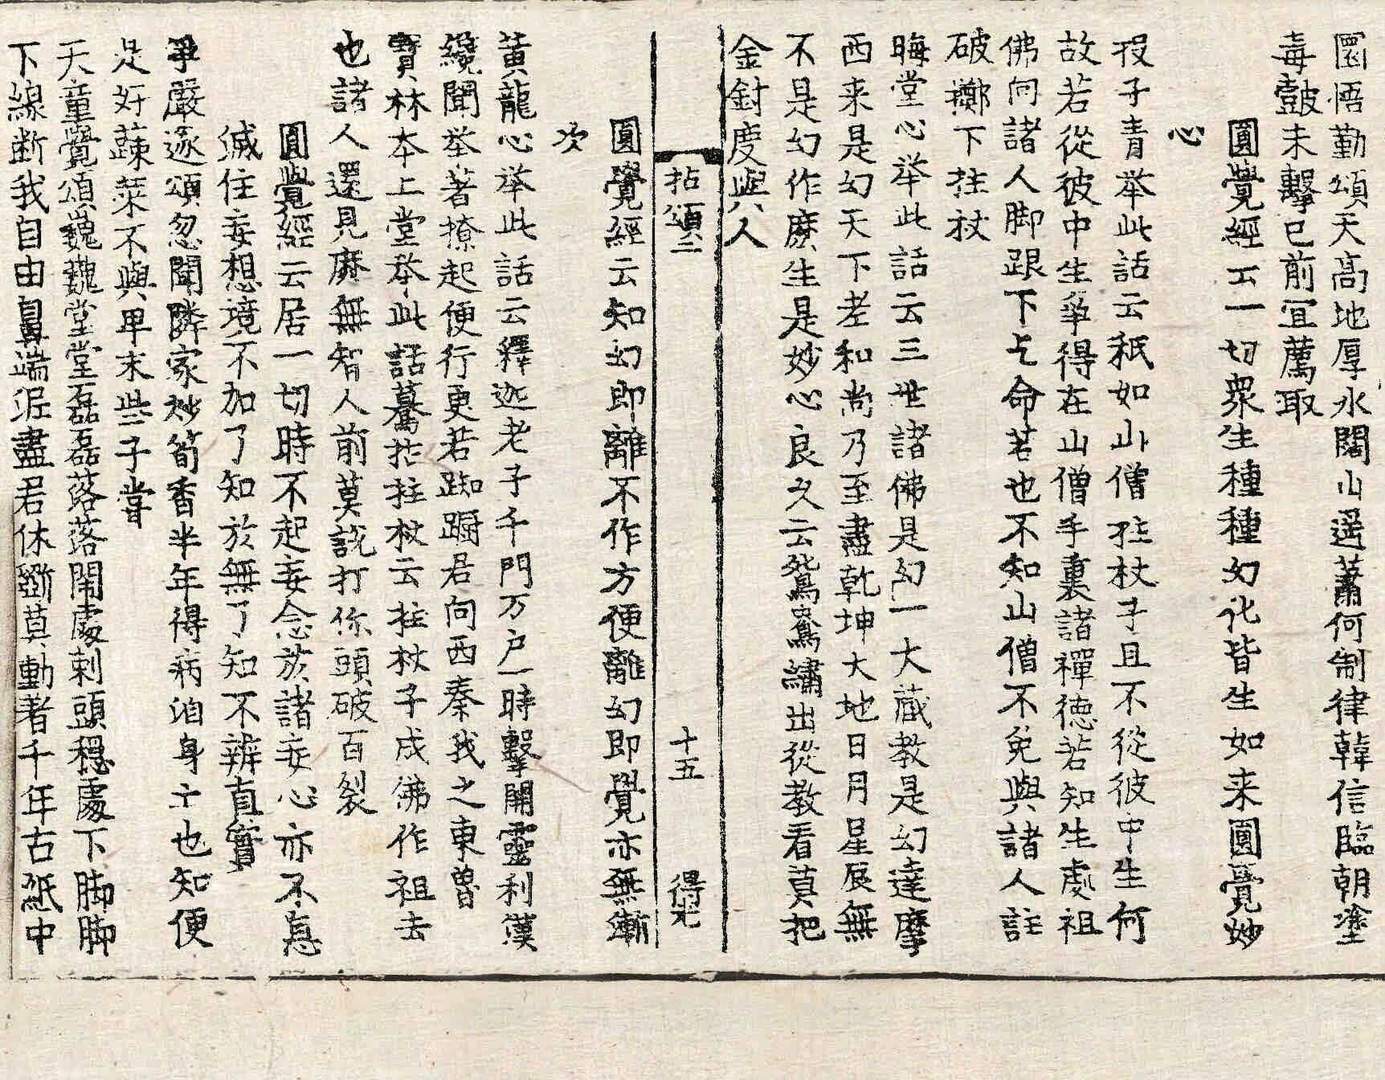 圜悟勤頌天高地厚水闊山遥蕭何制律韓信臨朝塗
毒鼓未擊已前宜薦取
圓覺經云一切衆生種種幻化皆生如来圓覺妙
心
投子青举此話云秖如山僧拄杖子且不從彼中生何
故若從彼中生爭得在山僧手裏諸禪德若知生處祖
佛向諸人脚跟下乞命若也不知山僧不免與諸人註
破擲下拄杖
晦堂心举此話云三世諸佛是幻一大蔵教是幻達摩
西来是幻天下老和尚乃至盡乾坤大地日月星辰無
不是幻作麽生是妙心良久云鴛鴦繡出從教看莫把
金針度與人
拈頌二 十五 得才
圓覺經云知幻即離不作方便離幻即覺亦無漸
次
黄龍心举此話云釋迦老子千門万户一時擊開靈利漢
纔聞举著撩起便行更若踟蹰君向西秦我之東魯
寳林本上堂举此話驀拈拄杖云拄杖子成佛作祖去
也諸人還見麽無智人前莫説打你頭破百裂
圓覺經云居一切時不起妄念於諸妄心亦不息
滅住妄想境不加了知於無了知不辨真實
爭嚴遂頌忽聞隣家炒筍香半年得病洎身亡也知便
是好蔬菜不與甲末些子甞
天童覺頌巍巍堂堂磊磊落落鬧處刺頭穏處下脚脚
下線断我自由鼻端泥盡君休斲莫動著千年古紙中